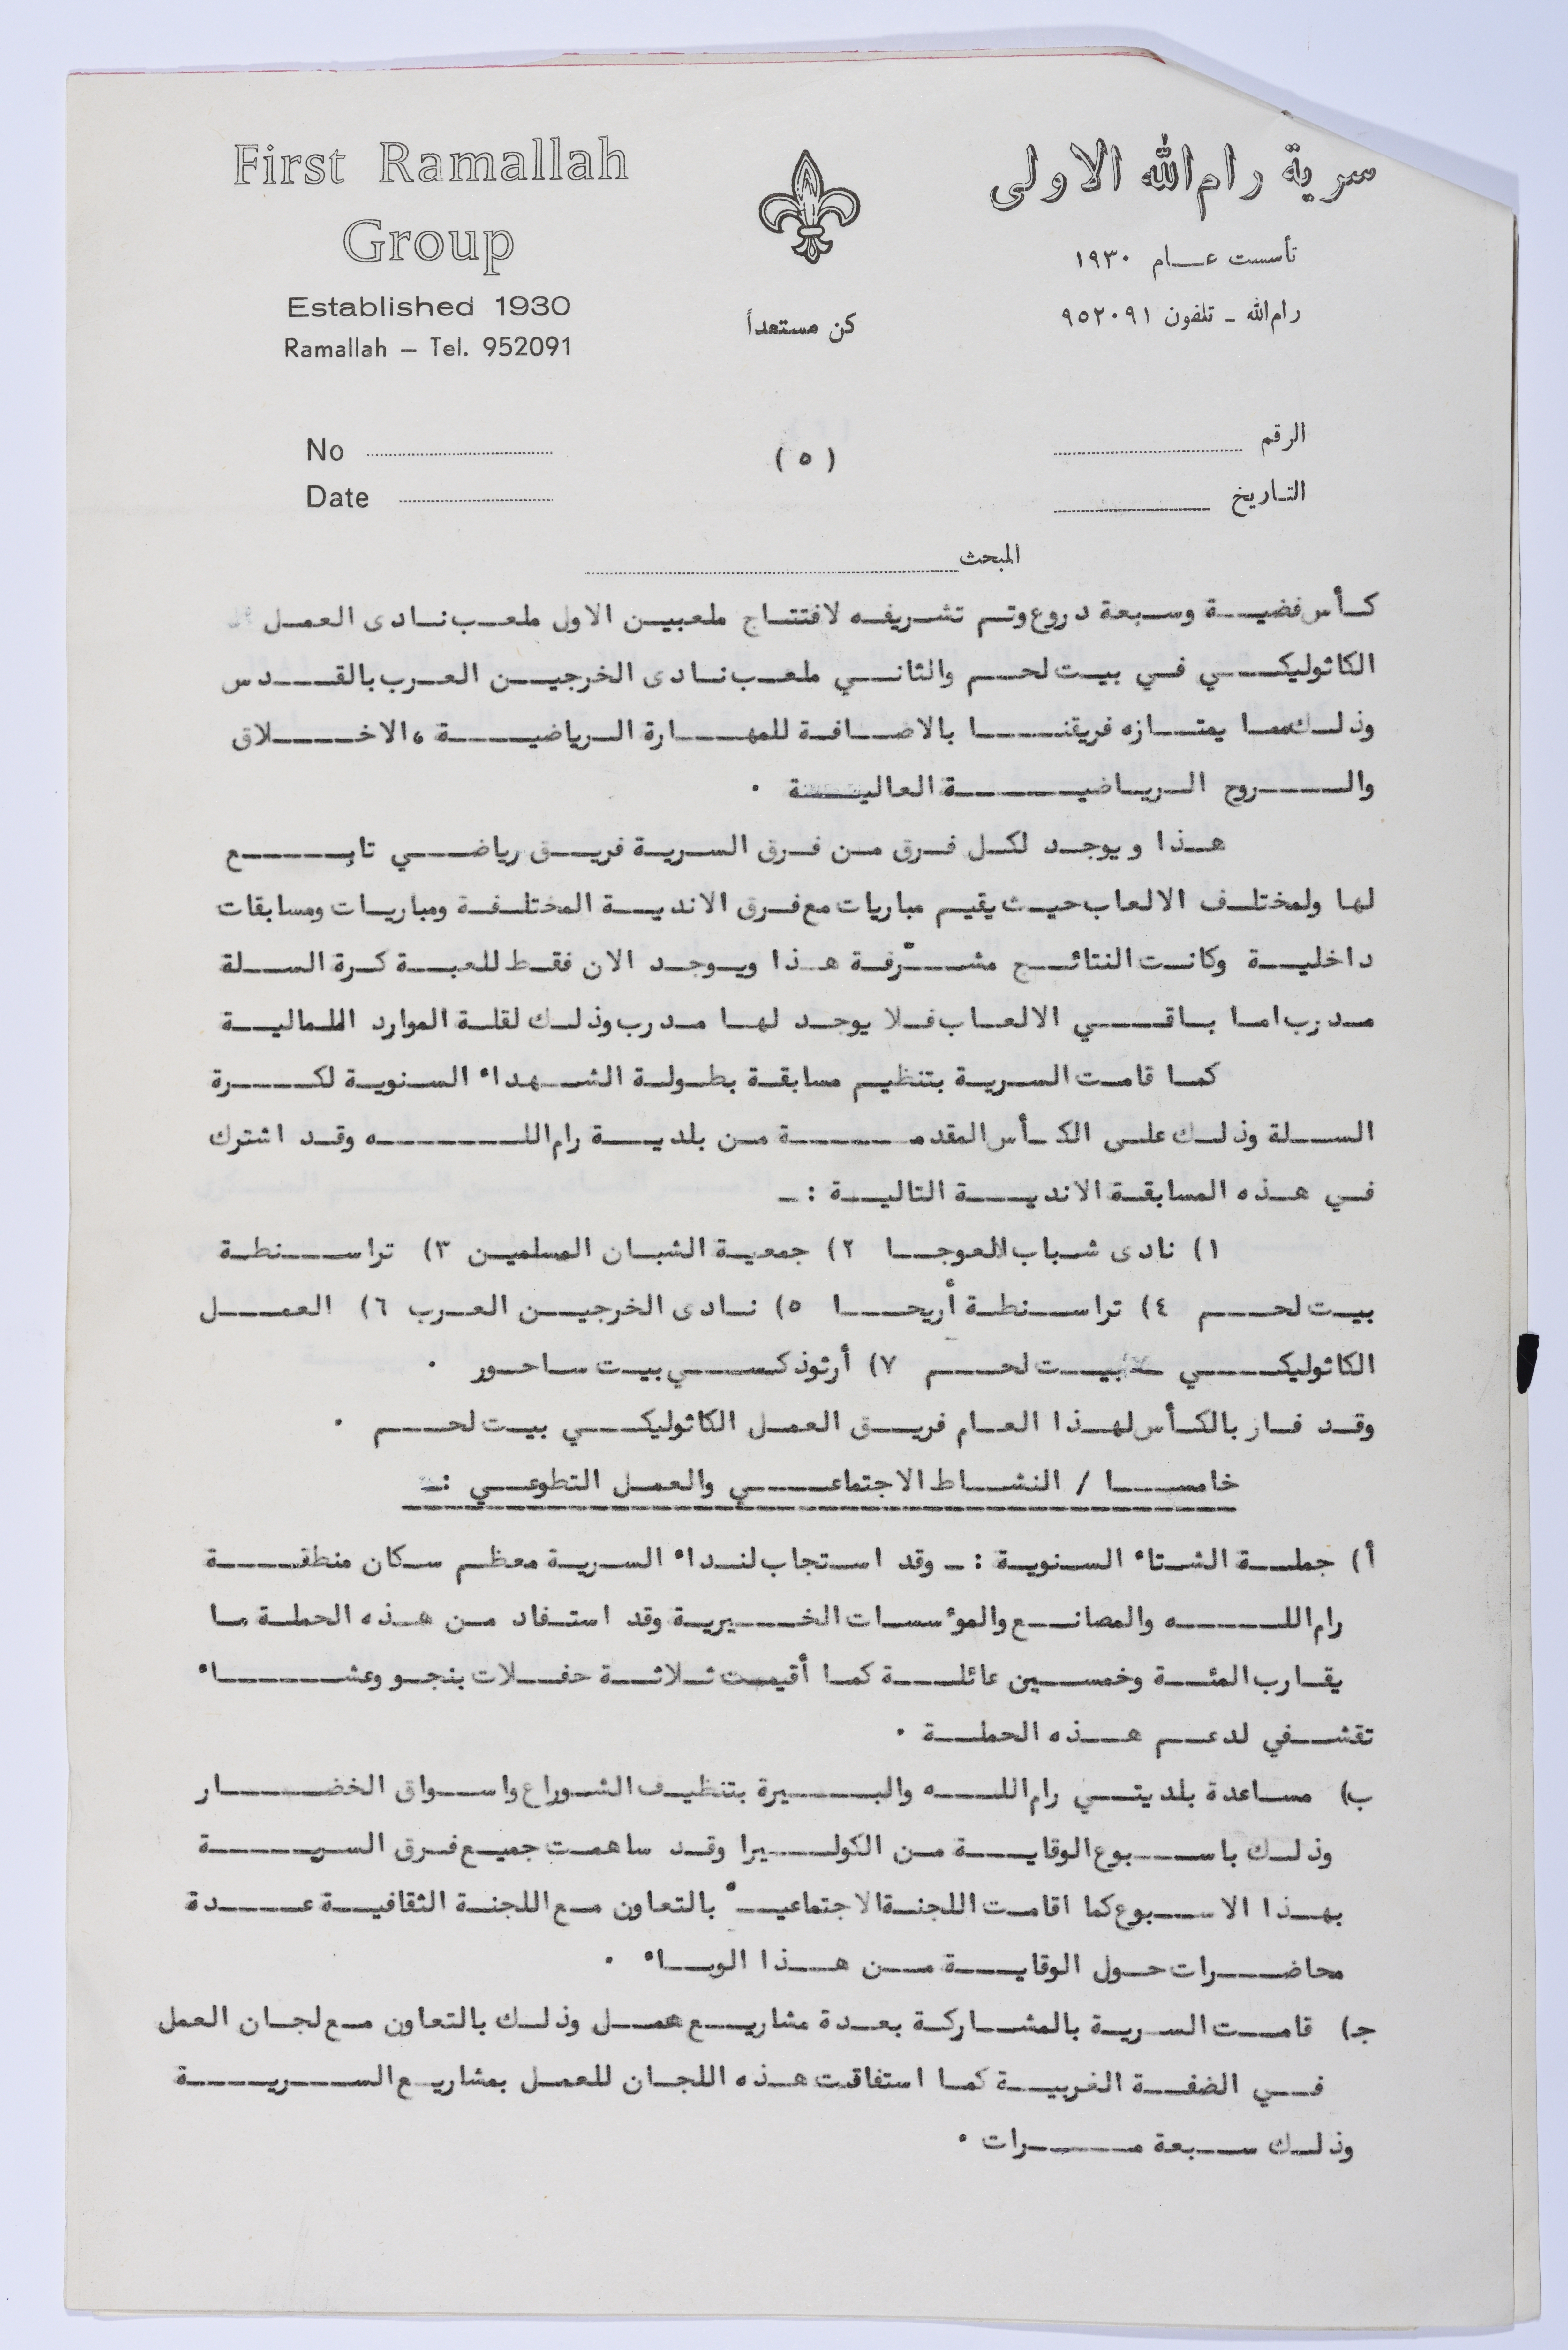 First Ramallah
Group
Established 1930
Ramallah – Tel. 952091
سرية رام الله الاولى
تأسست عام ١٩٣٠
رام الله - تلفون ٩٥٢٠٩١
كن مستعداً
No
Date
(٥)
الرقم
التاريخ
المبحث
كأس فضية وسبعة دروع وتم تشريفه لافتتاح ملعبين الاول ملعب نادى العمل
الكاثوليكي في بيت لحم والثاني ملعب نادى الخرجين العرب بالقدس
وذلك مما يمتازه فريقنا بالاضافة للمهارة الرياضية ، الاخلاق
والروح الرياضية العالية .
هذا ويوجد لكل فرق من فرق السرية فريق رياضي تابع
لها ولمختلف الالعاب حيث يقيم مباريات مع فرق الاندية المختلفة ومباريات ومسابقات
داخلية وكانت النتائج مشرّفة هذا ويوجد الان فقط للعبة كرة السلة
مدرب اما باقي الالعاب فلا يوجد لها مدرب وذلك لقلة الموارد المالية
كما قامت السرية بتنظيم مسابقة بطولة الشهداء السنوية لكرة
السلة وذلك على الكأس المقدمة من بلدية رام الله وقد اشترك
في هذه المسابقة الاندية التالية :-
١) نادى شباب العوجا ٢) جمعية الشبان المسلمين ٣) تراسنطة
بيت لحم ٤) تراسنطة أريحا ٥) نادى الخرجين العرب ٦) العمل
الكاثوليكي بيت لحم ٧) أرثوذكسي بيت ساحور .
وقد فاز بالكأس لهذا العام فريق العمل الكاثوليكي بيت لحم .
خامسا / النشاط الاجتماعي والعمل التطوعي :-
أ) حملة الشتاء السنوية :- وقد استجاب لنداء السرية معظم سكان منطقة
رام الله والمصانع والمؤسسات الخيرية وقد استفاد من هذه الحملة ما
يقارب المئة وخمسين عائلة كما أقيمت ثلاثة حفلات بنجو وعشاء
تقشفي لدعم هذه الحملة .
ب) مساعدة بلديتي رام الله والبيرة بتنظيف الشوراع واسواق الخضار
وذلك باسبوع الوقاية من الكوليرا وقد ساهمت جميع فرق السرية
بهذا الاسبوع كما اقامت اللجنة الاجتماعية بالتعاون مع اللجنة الثقافية عدة
محاضرات حول الوقاية من هذا الوباء .
جـ) قامت السرية بالمشاركة بعدة مشاريع عمل وذلك بالتعاون مع لجان العمل
في الضفة الغربية كما استفاقت هذه اللجان للعمل بمشاريع السرية
وذلك سبعة مرات .